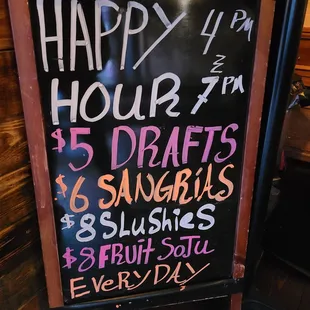 HAPPY 4 PM
&
HOUR 7 PM
$5 DRAFTS
$6 SANGRIAS
$8 SLUSHIES
$8 FRUIT SOJU
EVERYDAY